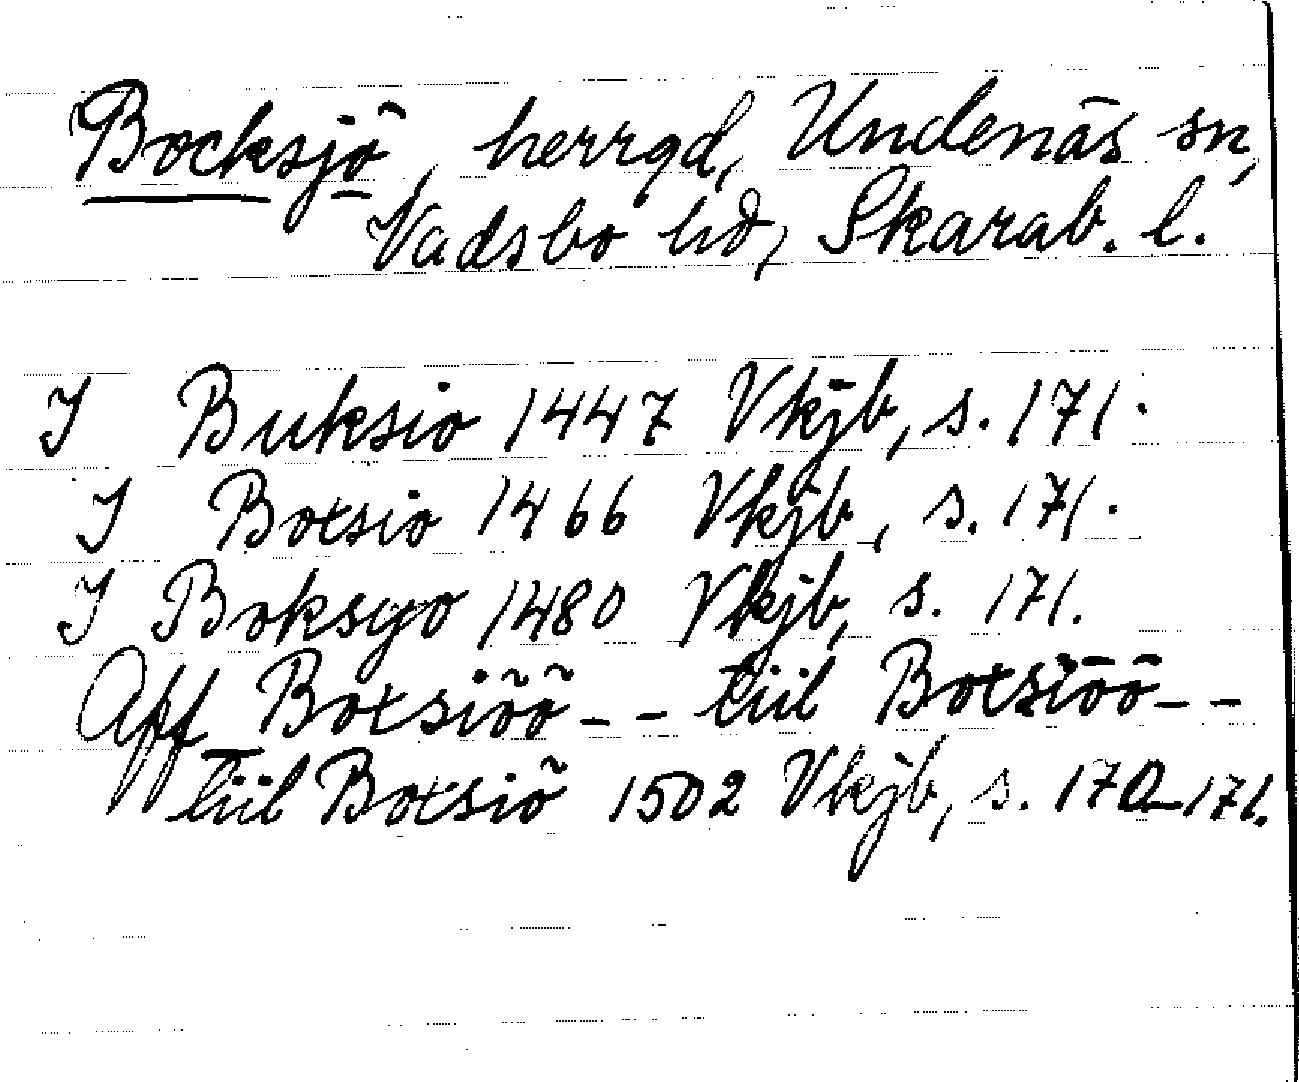 Bocksjö, herrgd, Undenäs sn,
Vadsbo hd, Skarab. l.
I Buksio 1447 Vkjb, s. 171.
I Botsio 1466 Vkjb, s. 171.
I Boksyo 1480 Vkjb, s. 171.
Aff Botsiöö - - tiil Botsiöö - -
tiil Botsiö 1502 Vkjb, s. 170-171.